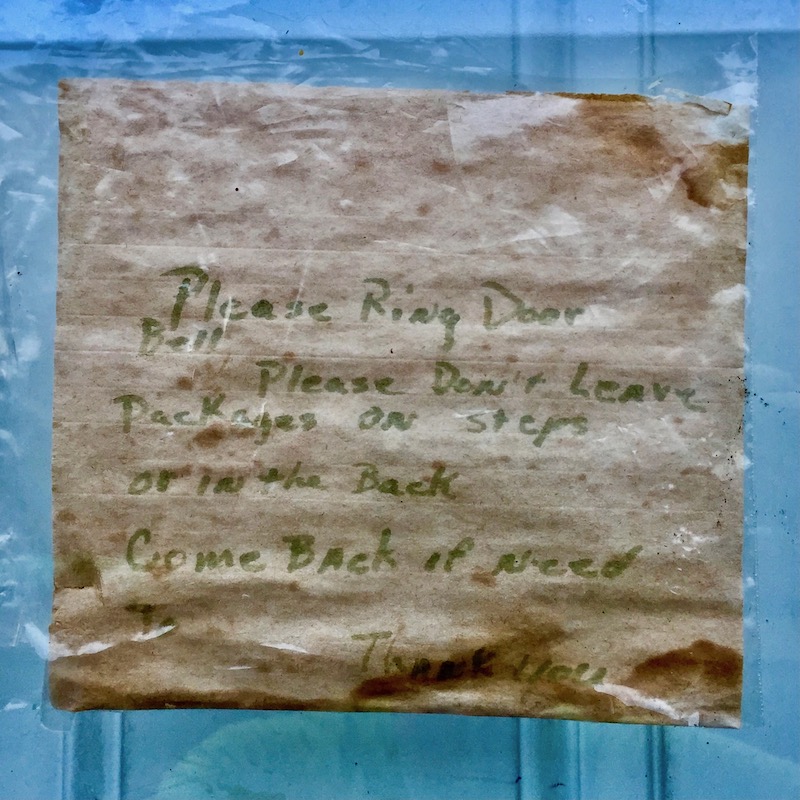 Please Ring Door
Bell
Please Don't Leave
Packages on steps
or in the Back
Come Back if need
To
Thank you